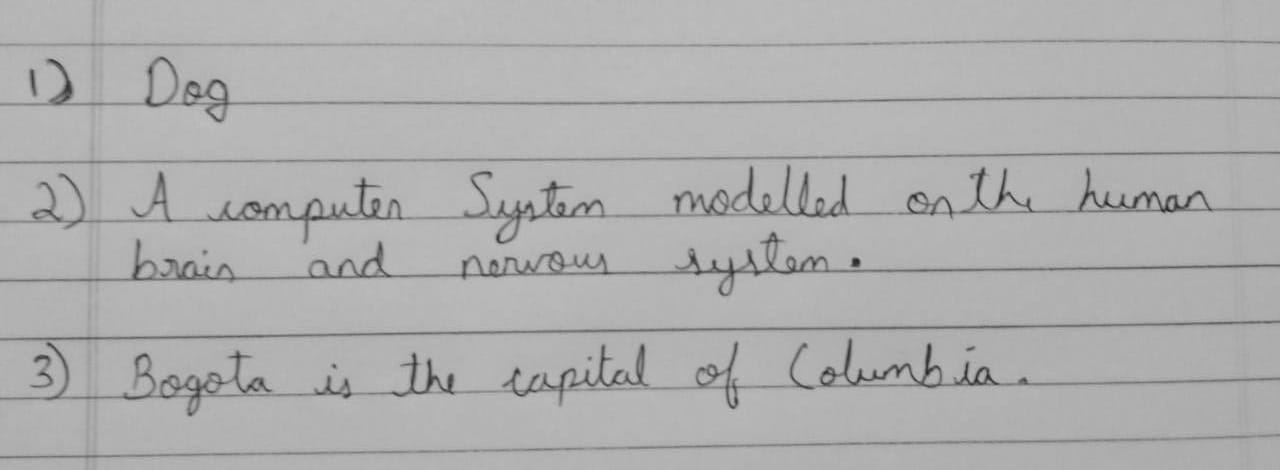 1) Dog
2) A computer System modelled on the human
brain and nervous system.
3) Bogota is the capital of Columbia.